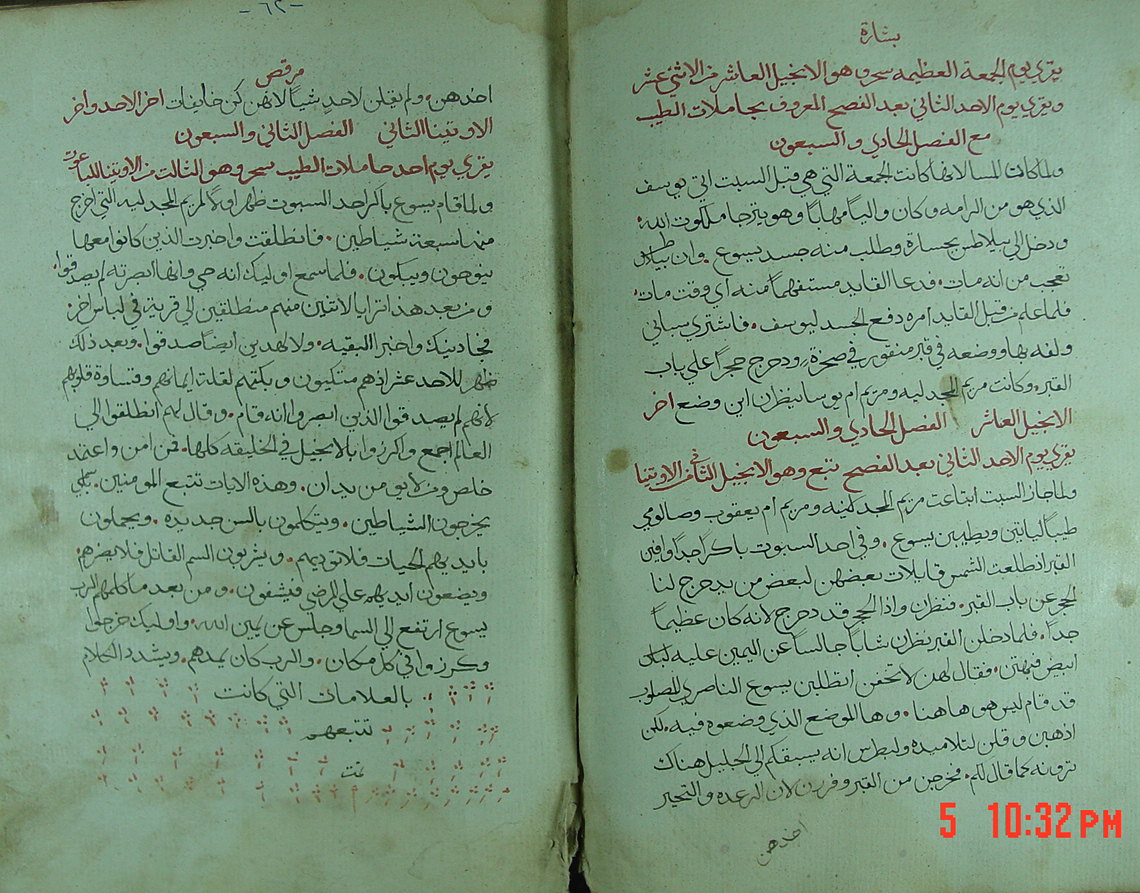 بشارة
يقري يوم الجمعة العظيمه سحر وهو الانجيل العاشر من الاثني عشر
ويقري يوم الاحد الثاني بعد الفصح المعروف بحاملات الطيب
مع الفصل الحادي والسبعون
ولما كان المسا لانها كانت الجمعة التي هي قبل السبت اتي يوسف
الذي هو من الرامه وكان واليا مهابا وهو يترجا ملكوت الله
ودخل الي بيلاطس بجسارة وطلب منه جسد يسوع وان بيلاطس
تعجب من انه مات فدعا القايد مستفهما منه اي وقت مات
فلما علم من قبل القايد امره دفع الجسد ليوسف فاشتري سباني
ولفه بها ووضعه في قبر منقور في صخرة ودحرج حجرا علي باب
القبر وكانت مريم المجدليه ومريم ام يوسا ينظران اين وضع اخر
الانجيل العاشر الفصل الحادي والسبعون
يقري يوم الاحد الثاني بعد الفصح تبع وهو الانجيل الثاني من الاوتينا
ولما جاز السبت ابتاعت مريم المجدليه ومريم ام يعقوب وصالومي
طيبا لياتين ويطيبن يسوع وفي احد السبوت باكرا جدا وافين
القبر اذ طلعت الشمس قايلات بعضهن لبعض من يدحرج لنا
الحجر عن باب القبر فنظرن واذا الحجر قد دحرج لانه كان عظيما
جدا فلما دخلن القبر نظرن شابا جالسا عن اليمين عليه لباس
ابيض فبهتن فقال لهن لا تخفن اتطلبن يسوع الناصري المصلوب
قد قام ليس هو هاهنا وها الموضع الذي وضعوه فيه لكن
اذهبن وقلن لتلاميذه ولبطرس انه يسبقكم الي الجليل هناك
ترونه كما قال لكم فخرجن من القبر وفررن لان الرعده والتحير
اخذهن
-٦٢-
مرقص
اخذهن ولم يقلن لاحد شيا لانهن كن خايفات اخر الاحد واخر
الاوتينا الثاني الفصل الثاني والسبعون
يقري يوم احد حاملات الطيب سحر وهو الثالث من الاوتينا
ولما قام يسوع باكر احد السبوت ظهر اولا لمريم المجدليه التي اخرج
منها سبعة شياطين فانطلقت واخبرت الذين كانوا معها
ينوحون ويبكون فلما سمع اوليك انه حي وانها ابصرته لم يصدقوا
ومن بعد هذا ترايا لاثنين منهم منطلقين الي قرية في لباس اخر
فجا ذينك واخبرا البقيه ولا لهذين ايضا صدقوا وبعد ذلك
ظهر للاحد عشر اذهم متكيون وبكتهم لقلة ايمانهم وقساوة قلوبهم
لانهم لم يصدقوا الذين ابصروا انه قام وقال لهم انطلقوا الي
العالم اجمع واكرزوا بالانجيل في الخليقه كلها فمن امن واعتمد
خلص ومن لا يومن يدان وهذه الايات تتبع المومنين باسمي
يخرجون الشياطين ويتكلمون بالسن جديده ويحملون
بايديهم الحيات فلا توذيهم ويشربون السم القاتل فلا يضرهم
ويضعون ايديهم علي المرضي فيشفون ومن بعد ما كلمهم الرب
يسوع ارتفع الي السما وجلس عن يمين الله واوليك خرجوا
وكرزوا في كل مكان والرب كان يمدهم ويشدد الكلام
بالعلامات التي كانت
تتبعهم
تمت
5 10:32 PM